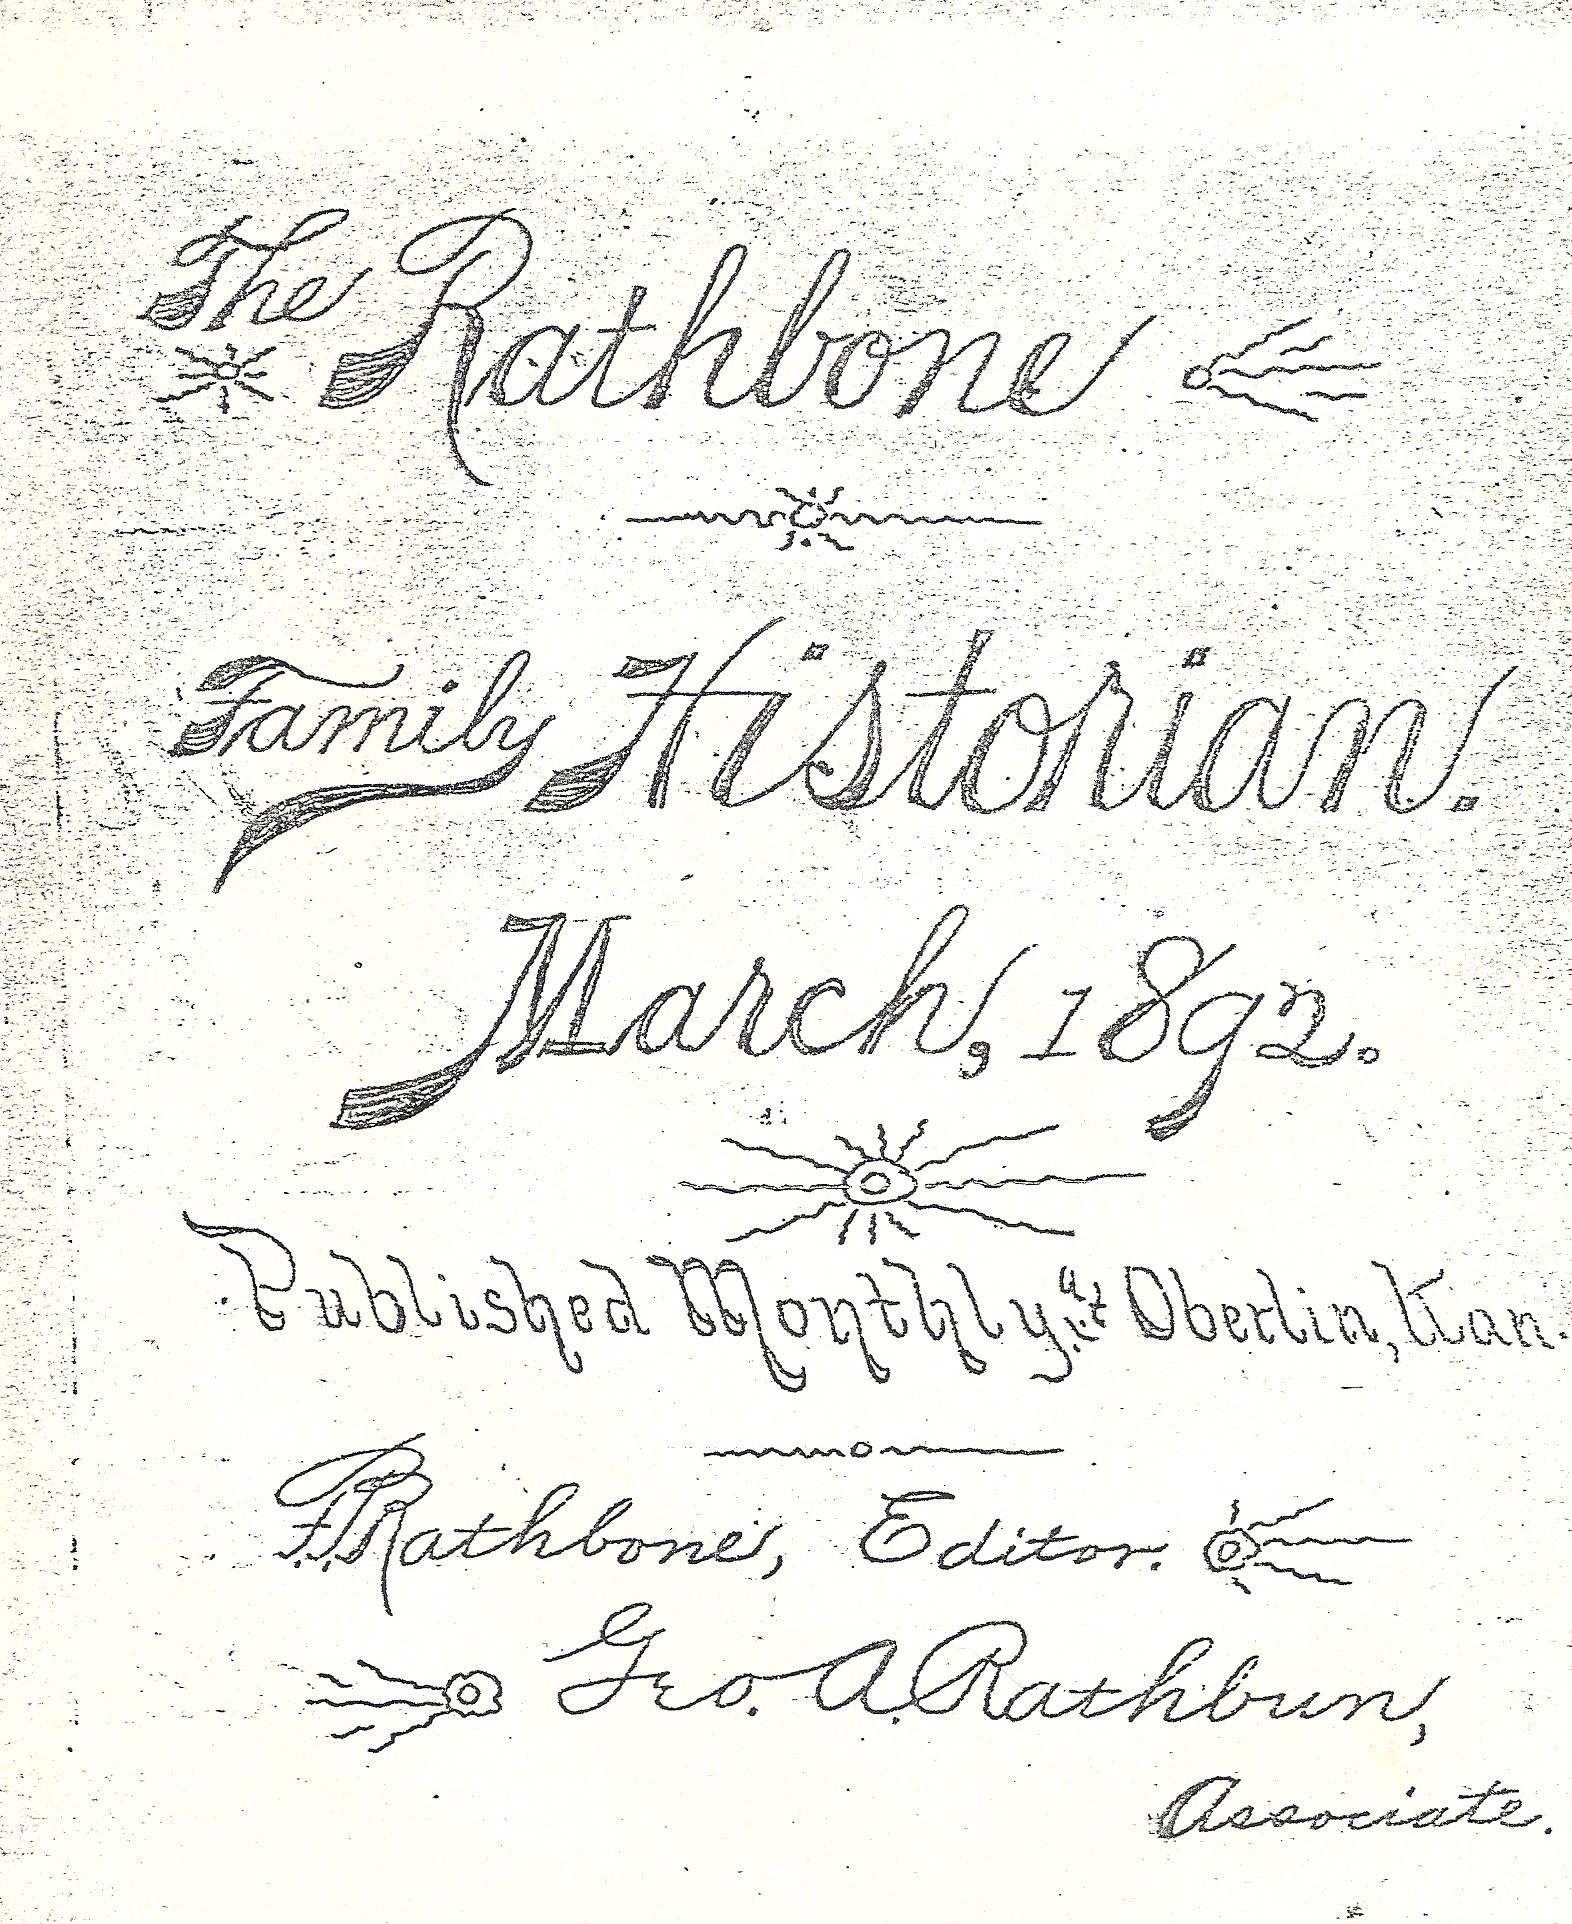 The Rathbone
Family Historian!
March, 1892.
Published Monthly at Oberlin, Kan.
F. P. Rathbone, Editor.
Geo. A. Rathbun,
Associate.